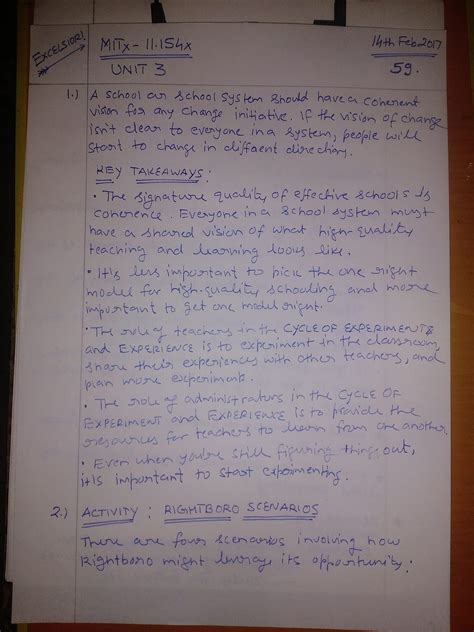 EXCELSIOR!
MITx - 11.154x
14th Feb 2017
UNIT 3
59.
1.) A school or school system should have a coherent
vision for any change initiative. If the vision of change
isn't clear to everyone in a system, people will
start to change in different direction.
KEY TAKEAWAYS:
• The signature quality of effective schools is
coherence. Everyone in a school system must
have a shared vision of what high-quality
teaching and learning looks like.
• It's less important to pick the one right
model for high-quality schooling and more
important to get one model right.
• The role of teachers in the CYCLE OF EXPERIMENT
and EXPERIENCE is to experiment in the classroom,
share their experiences with other teachers, and
plan more experiments.
• The role of administrators in the CYCLE OF
EXPERIMENT and EXPERIENCE is to provide the
resources for teachers to learn from one another.
• Even when you're still figuring things out,
it is important to start experimenting.
2.) ACTIVITY : RIGHTBORO SCENARIOS
There are four scenarios involving how
Rightboro might leverage its opportunity: